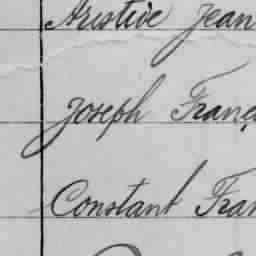 Aristide Jean
Joseph Franç
Constant Fran